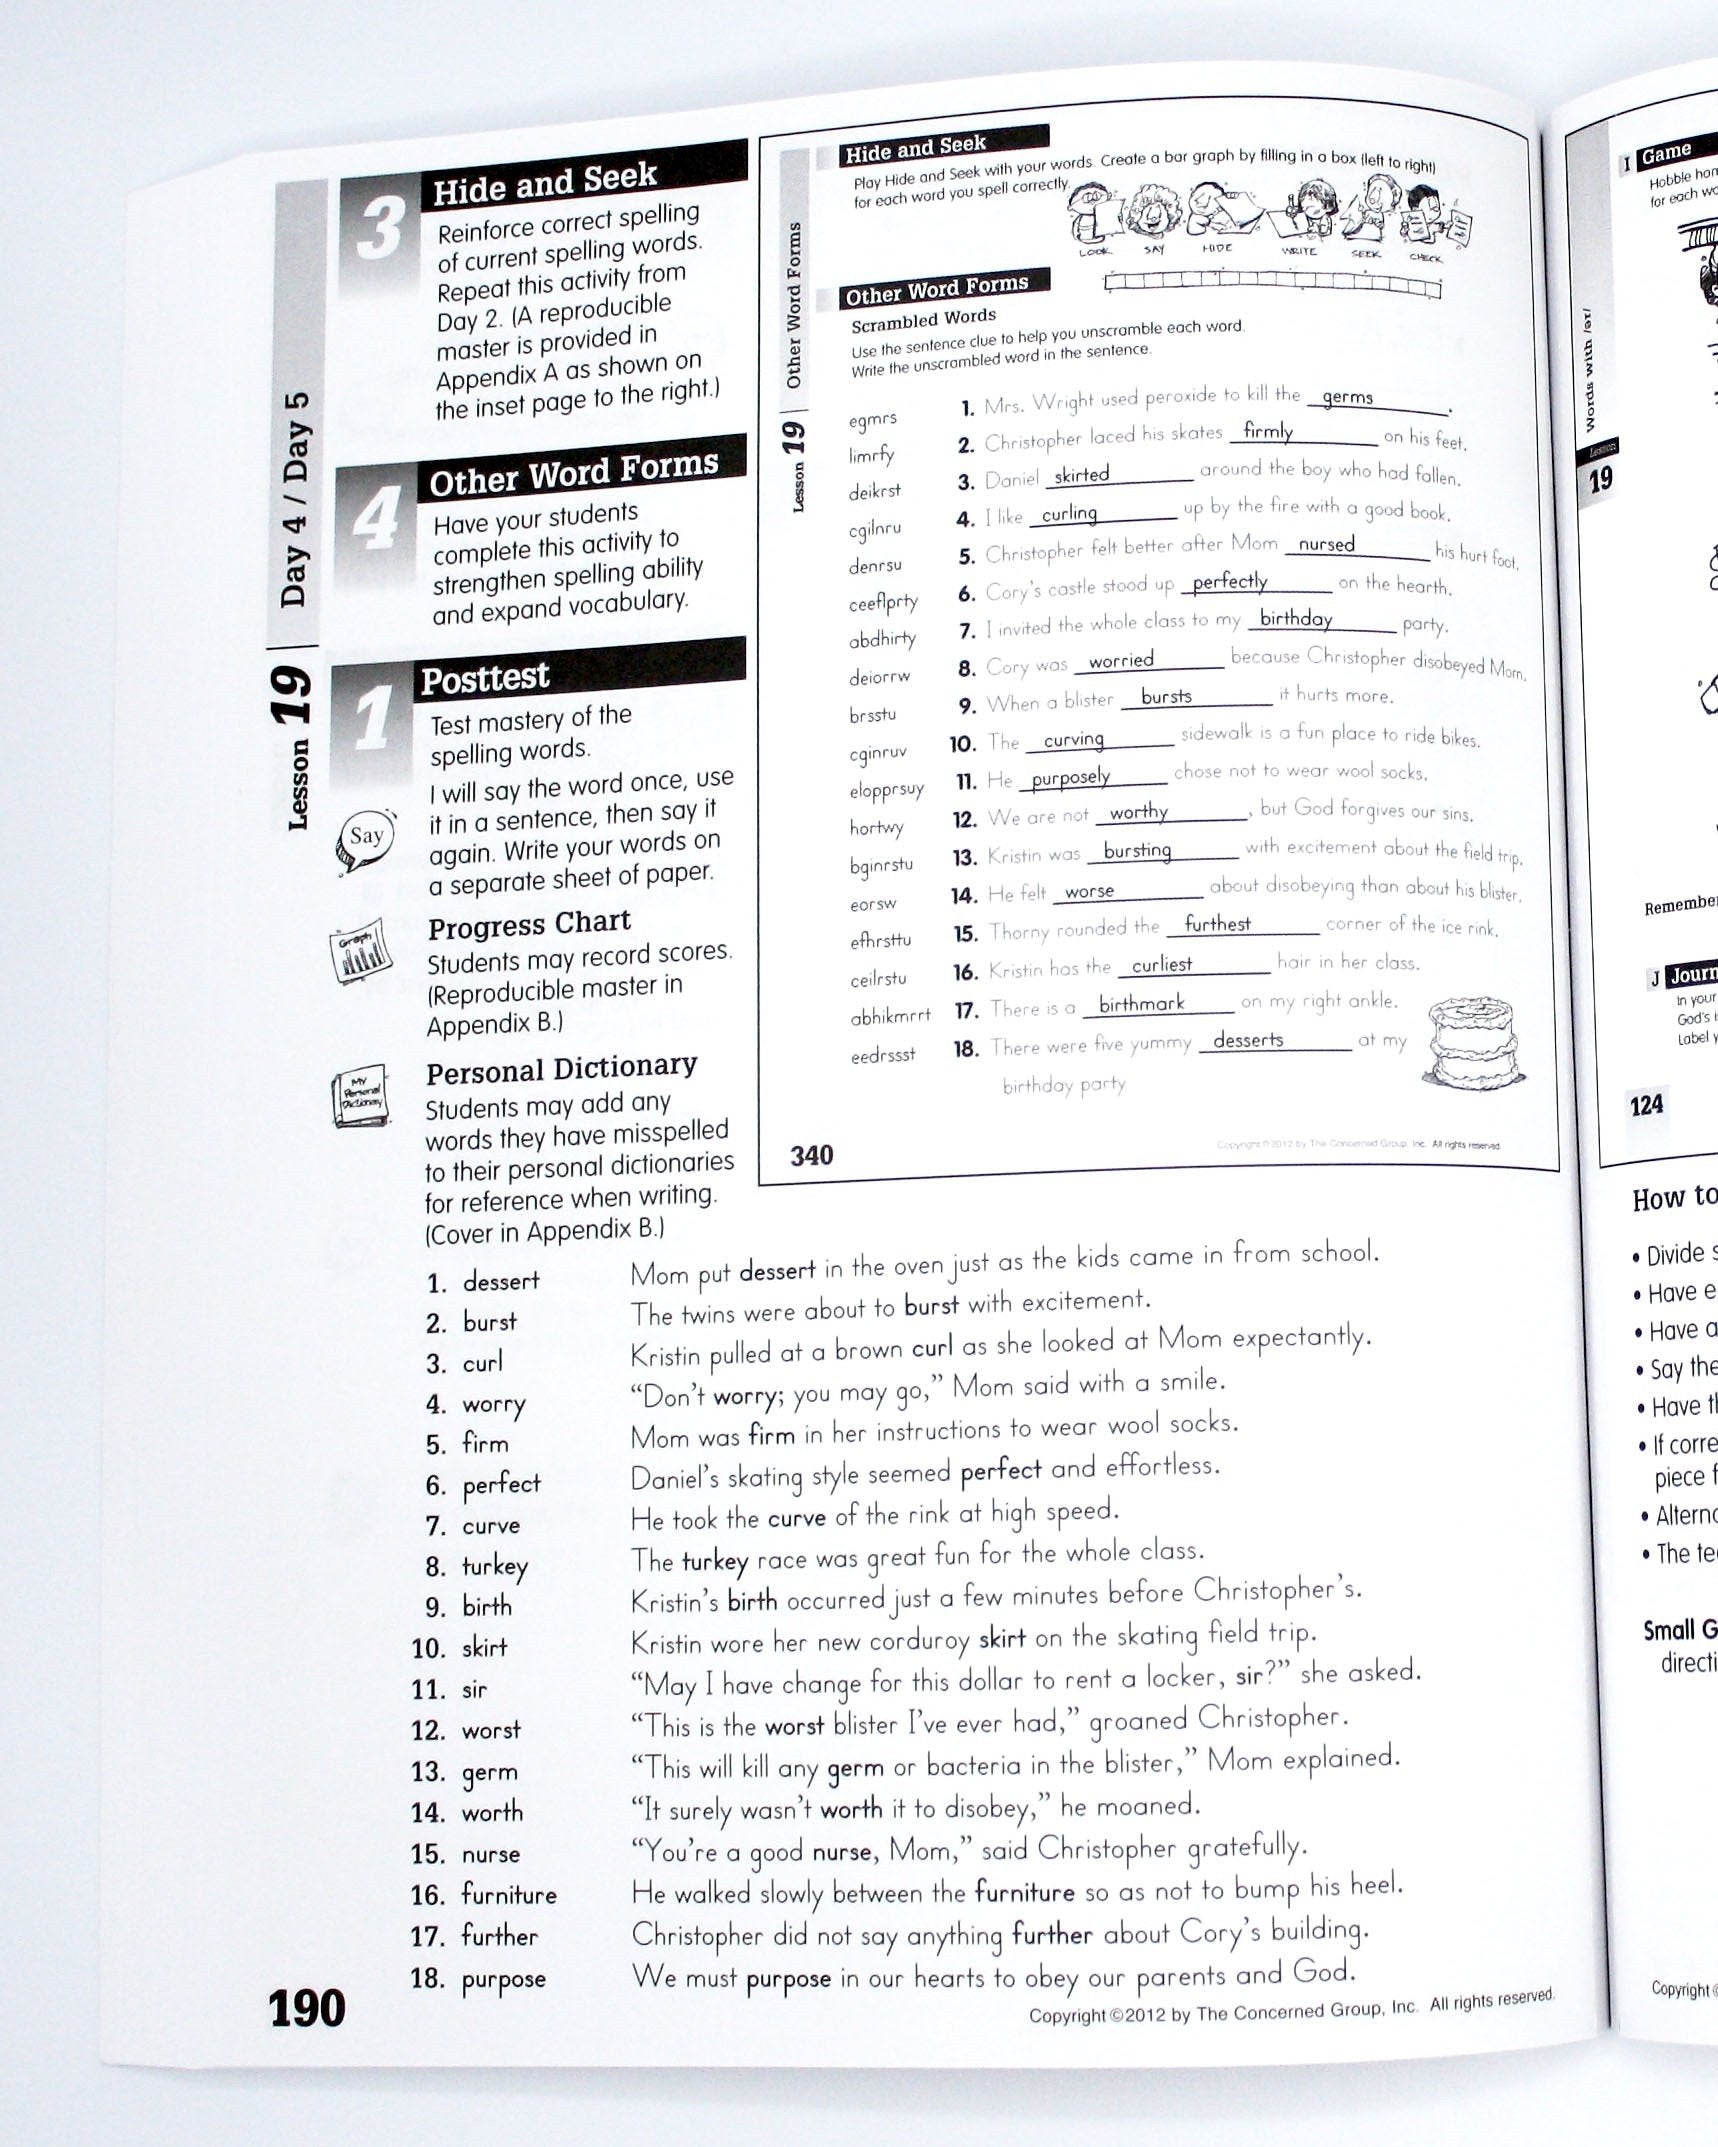 Lesson 19 | Day 4 / Day 5
3 Hide and Seek
Reinforce correct spelling
of current spelling words.
Repeat this activity from
Day 2. (A reproducible
master is provided in
Appendix A as shown on
the inset page to the right.)
4 Other Word Forms
Have your students
complete this activity to
strengthen spelling ability
and expand vocabulary.
1 Posttest
Test mastery of the
spelling words.
Say
I will say the word once, use
it in a sentence, then say it
again. Write your words on
a separate sheet of paper.
Graph
Progress Chart
Students may record scores.
(Reproducible master in
Appendix B.)
My
Personal
Dictionary
Personal Dictionary
Students may add any
words they have misspelled
to their personal dictionaries
for reference when writing.
(Cover in Appendix B.)
Lesson 19 | Other Word Forms
Hide and Seek
Play Hide and Seek with your words. Create a bar graph by filling in a box (left to right)
for each word you spell correctly.
LOOK SAY HIDE WRITE SEEK CHECK
Other Word Forms
Scrambled Words
Use the sentence clue to help you unscramble each word.
Write the unscrambled word in the sentence.
egmrs 1. Mrs. Wright used peroxide to kill the germs.
limrfy 2. Christopher laced his skates firmly on his feet.
deikrst 3. Daniel skirted around the boy who had fallen.
cgilnru 4. I like curling up by the fire with a good book.
denrsu 5. Christopher felt better after Mom nursed his hurt foot.
ceeflprty 6. Cory's castle stood up perfectly on the hearth.
abdhirty 7. I invited the whole class to my birthday party.
deiorrw 8. Cory was worried because Christopher disobeyed Mom.
brsstu 9. When a blister bursts it hurts more.
cginruv 10. The curving sidewalk is a fun place to ride bikes.
elopprsuy 11. He purposely chose not to wear wool socks.
hortwy 12. We are not worthy, but God forgives our sins.
bginrstu 13. Kristin was bursting with excitement about the field trip.
eorsw 14. He felt worse about disobeying than about his blister.
efhrsttu 15. Thorny rounded the furthest corner of the ice rink.
ceilrstu 16. Kristin has the curliest hair in her class.
abhikmrrt 17. There is a birthmark on my right ankle.
eedrssst 18. There were five yummy desserts at my
birthday party
340
Copyright ©2012 by The Concerned Group, Inc. All rights reserved.
1. dessert Mom put dessert in the oven just as the kids came in from school.
2. burst The twins were about to burst with excitement.
3. curl Kristin pulled at a brown curl as she looked at Mom expectantly.
4. worry “Don't worry; you may go,” Mom said with a smile.
5. firm Mom was firm in her instructions to wear wool socks.
6. perfect Daniel's skating style seemed perfect and effortless.
7. curve He took the curve of the rink at high speed.
8. turkey The turkey race was great fun for the whole class.
9. birth Kristin's birth occurred just a few minutes before Christopher's.
10. skirt Kristin wore her new corduroy skirt on the skating field trip.
11. sir “May I have change for this dollar to rent a locker, sir?” she asked.
12. worst “This is the worst blister I've ever had,” groaned Christopher.
13. germ “This will kill any germ or bacteria in the blister,” Mom explained.
14. worth “It surely wasn't worth it to disobey,” he moaned.
15. nurse “You're a good nurse, Mom,” said Christopher gratefully.
16. furniture He walked slowly between the furniture so as not to bump his heel.
17. further Christopher did not say anything further about Cory's building.
18. purpose We must purpose in our hearts to obey our parents and God.
190
Copyright ©2012 by The Concerned Group, Inc. All rights reserved.
Words with /ər/
Lesson
19
I Game
Hobble
for each
Remember
J
In your
God's
Label
124
How to
• Divide
• Have
• Have
• Say the
• Have
• If
piece
•
• The
Small
Copyright